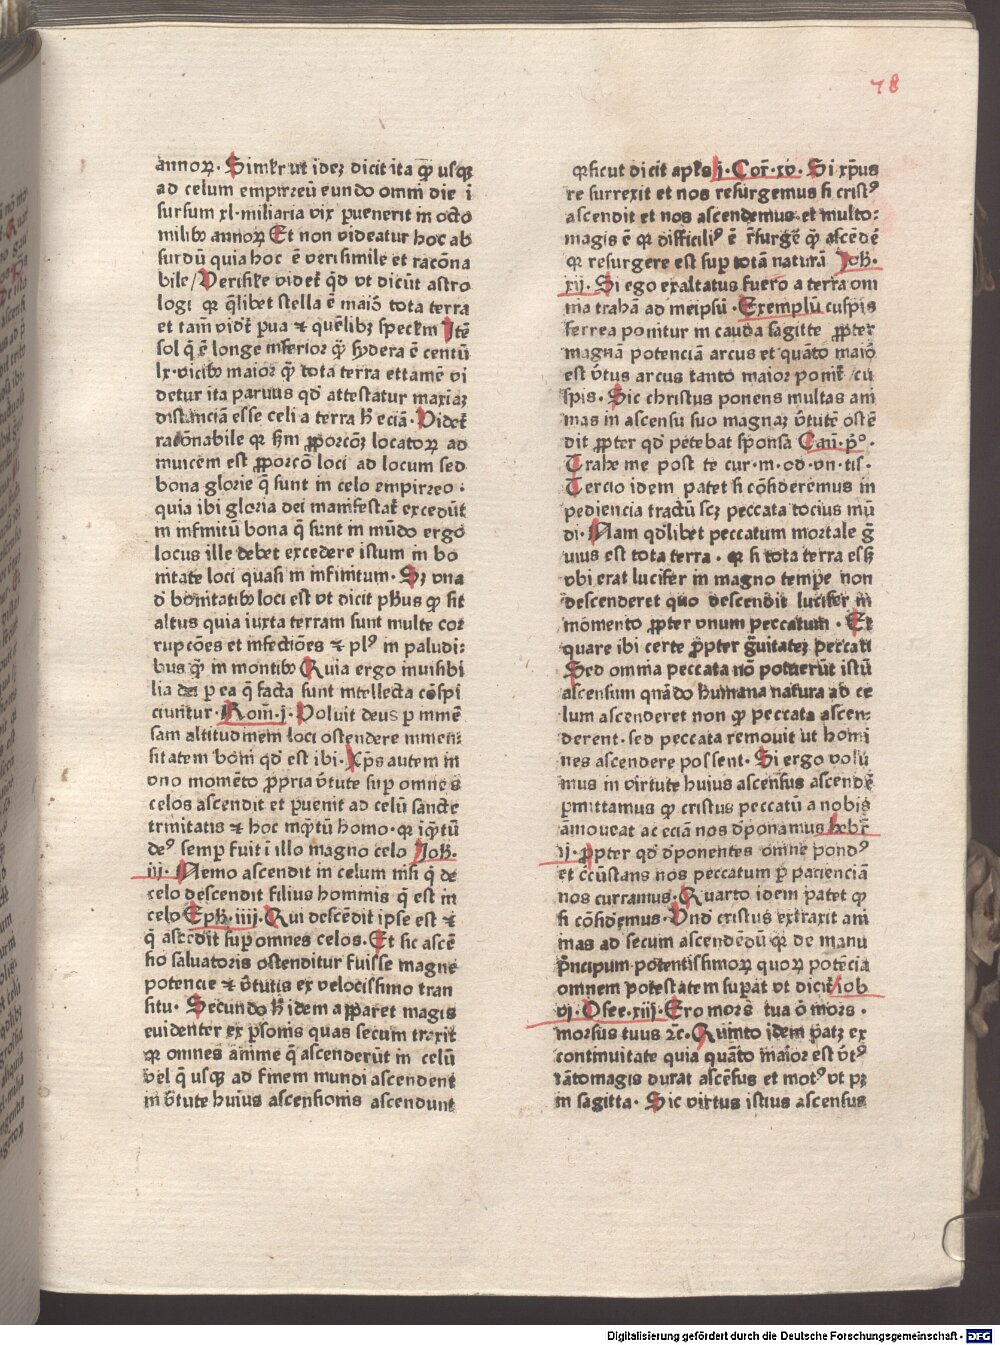 78
annoꝝ. Simlʼr ut ideꝫ dicit ita ꝙ̄ uſqꝫ
ad celum empirreū eundo omni die ī
ſurſum xl·miliaria vix ꝑuenerit in octo
milibꝰ annoꝝ Et non videatur hoc ab
ſurdū quia hoc ē veriſimile et racōna
bile/Veriſilʼe videtʼ q̄d vt dicūt aſtro
logi qꝛ q̄libet ſtella ē maiō tota terra
et tam̄ vidʼt ꝑua ⁊ quēlibꝫ ſpeckm̄ Itē
ſol q̄ ē longe inferior ꝙ̄ ſydera ē centū
lx·vicibꝰ maior ꝙ̄ tota terra ettamē vi
detur ita paruus qd̓ atteſtatur maxīaꝫ
diſtanciā eſſe celi a terra ħ eciā·Videtʼ
racōnabile qꝛ ſcd̄m ꝓporcōꝫ locatoꝝ ad
inuicem eſt ꝓporcō loci ad locum ſed
bona glorie q̄ ſunt in celo empirreo·
quia ibi gloria dei manifeſtatʼ excedūt
in infinitū bona q̄ ſunt in mūdo ergo
locus ille debet excedere iſtum in bo
nitate loci quaſi in infinitum· Sꝫ vna
d̓ bonitatibꝰ loci eſt vt dicit pħus ꝙ ſit
altus quia iuxta terram ſunt multe cor
rupcōes et infectiōes ⁊ plꝰ in paludi
bus ꝙ̄ in montibꝰ Quia ergo inuiſibi
lia dei ꝑ ea q̄ facta ſunt intellecta cōſpi
ciuntur·Rom̄·j· Voluit deus ꝑ inmē
ſam altitudinem loci oſtendere inmen
ſitatem boni qd̓ eſt ibi·Xp̄s autem in
vno momēto ꝓpria v̓tute ſuꝑ omnes
celos aſcendit et ꝑuenit ad celū ſancte
trinitatis ⁊ hoc inq̄tū homo·qꝛ iq̄tū
deꝰ ſemꝑ fuit ī illo magno celo Joħ·
iij· Nemo aſcendit in celum niſi q̄ de
celo deſcendit filius hominis q̄ eſt in
celo Epħ·iiij·Qui deſcēdit ipſe eſt ⁊
q̄ aſcēdit ſuꝑ omnes celos·Et ſic aſcē
ſio ſaluatoris oſtenditur fuiſſe magne
potencie ⁊ v̓tutis ex velociſſimo tran
ſitu· Secundo ħ idem apparet magis
euidenter ex ꝑſonis quas ſecum traxit
qꝛ omnes anime q̄ aſcenderūt in celū
vel q̄ uſqꝫ ad finem mundi aſcendent
in v̓tute huius aſcenſionis aſcendunt
qꝛſicut dicit apłs j·Cor̄·xv· Si xp̄us
re ſurrexit et nos reſurgemus ſi criſtꝰ
aſcendit et nos aſcendemus et multo
magis ē qꝛ difficiliꝰ ē r̄ſurgē ꝙ̄ aſcēdē
qꝛ reſurgere eſt ſuꝑ totā naturā Joħ·
xij· Si ego exaltatus fuero a terra om
nia trahā ad meipſū·Exemplū cuſpis
ferrea ponitur in cauda ſagitte ꝓpter
magnā potenciā arcus et quāto maiō
eſt v̓tus arcus tanto maior ponitʼ cu
ſpis· Sic chriſtus ponens multas ani
mas in aſcenſu ſuo magnaꝫ v̓tutē oſtē
dit ꝓpter qd̓ petebat ſponſa Can̄·pͦ·
Trahe me poſt te cur·in·od·vn·tis·
Tercio idem patet ſi cōſideremus in
pediencia tractū ſcꝫ peccata tocius mū
di· Nam qd̓libet peccatum mortale ḡ
uius eſt tota terra· qꝛ ſi tota terra eſſꝫ
vbi erat lucifer in magno tempe non
deſcenderet quo deſcendit lucifer in
momento ꝓpter vnum peccatum · Et
quare ibi certe ꝓpter ḡuitateꝫ peccati
Sed omnia peccata nō potuerūt iſtū
aſcenſum quādo humana natura ad ce
lum aſcenderet non ꝙ peccata aſcen
derent·ſed peccata remouit ut homi
nes aſcendere poſſent· Si ergo volu
mus in virtute huius aſcenſus aſcendē
ꝑmittamus ꝙ criſtus peccatū a nobis
amoueat ac eciā nos d̓ponamus hebr̄
ij· ꝓpter qd̓ d̓ponentes omne pondꝰ
et cc̄uſtans nos peccatum ꝑ pacienciā
nos curramus·Quarto idem patet ꝙ
ſi cōſid̓emus·Vnd̓ criſtus extraxit ani
mas ad ſecum aſcendēdū qꝛ de manu
pͥncipum potentiſſimoꝝ quoꝝ potēcia
omnem poteſtatem ſuꝑat vt dicitʼ iob
vj·Oſee·xiij·Ero mors̄ tua ō mors·
morſus tuus ⁊c̄·Quinto idem patꝫ ex
continuitate quia quāto maior eſt v̓tꝰ
tāto magis durat aſcēſus et motꝰ vt pꝫ
in ſagitta· Sic virtus iſtius aſcenſus
Digitalisierung gefördert durch die Deutsche Forschungsgemeinschaft - DFG